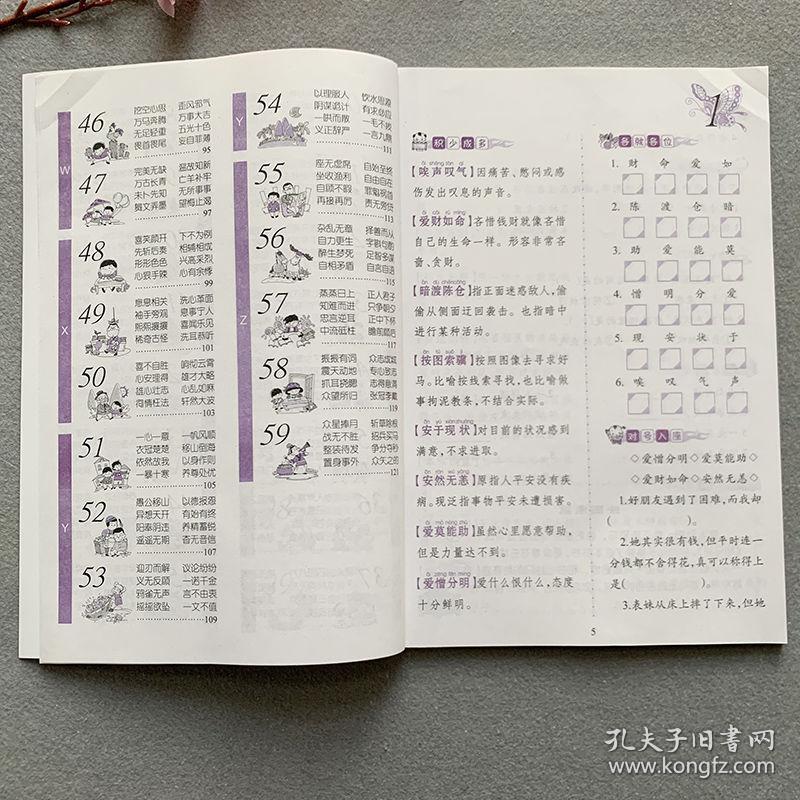 W
46
挖空心思 歪风邪气
万马奔腾 万事大吉
无足轻重 五光十色
畏首畏尾 妄自菲薄
95
47
完美无缺 温故知新
万古长青 亡羊补牢
未卜先知 无所事事
舞文弄墨 望梅止渴
97
X
48
喜笑颜开 下不为例
先斩后奏 相辅相成
形形色色 兴高采烈
心狠手辣 心有余悸
99
49
息息相关 洗心革面
袖手旁观 息事宁人
熙熙攘攘 喜闻乐见
稀奇古怪 洗耳恭听
101
50
喜不自胜 响彻云霄
心安理得 雄才大略
雄心壮志 心乱如麻
徇情枉法 轩然大波
103
Y
51
一心一意 一帆风顺
衣冠楚楚 移山倒海
依然故我 以身作则
一暴十寒 养尊处优
105
52
愚公移山 以德报怨
异想天开 有始有终
阳奉阴违 养精蓄锐
遥遥无期 杳无音信
107
53
迎刃而解 议论纷纷
义无反顾 一诺千金
鸦雀无声 言不由衷
摇摇欲坠 一文不值
109
Y
54
以理服人 饮水思源
阴谋诡计 有求必应
一哄而散 一毛不拔
义正辞严 一言九鼎
111
Z
55
座无虚席 自始至终
坐收渔利 自由自在
自顾不暇
再接再厉 责无旁贷
113
56
杂乱无章 择善而从
自力更生 字斟句酌
醉生梦死 足智多谋
自相矛盾 自言自语
115
57
蒸蒸日上 正人君子
知难而进 只争朝夕
忠言逆耳 正中下怀
中流砥柱 瞻前顾后
117
58
振振有词 众志成城
震天动地 专心致志
抓耳挠腮 志得意满
众望所归 张冠李戴
119
59
众星捧月 斩草除根
战无不胜 招兵买马
整装待发 争分夺秒
置身事外 众矢之的
121
1
积少成多
āi shēng tàn qì
【唉声叹气】因痛苦、憋闷或感
伤发出叹息的声音。
ài cái rú mìng
【爱财如命】吝惜钱财就像吝惜
自己的生命一样。形容非常吝
啬、贪财。
àn dù chéncāng
【暗渡陈仓】指正面迷惑敌人，偷
偷从侧面迂回袭击。也指暗中
进行某种活动。
àn tú suǒ jì
【按图索骥】按照图像去寻求好
马。比喻按线索寻找，也比喻做
事拘泥教条，不结合实际。
ān yú xiànzhuàng
【安于现状】对目前的状况感到
满意，不求进取。
ān rán wú yàng
【安然无恙】原指人平安没有疾
病。现泛指事物平安未遭损害。
ài mò néng zhù
【爱莫能助】虽然心里愿意帮助，
但是力量达不到。
ài zēng fēn míng
【爱憎分明】爱什么恨什么，态度
十分鲜明。
各就各位
1. 财 命 爱 如
2. 陈 渡 仓 暗
3. 助 爱 能 莫
4. 憎 明 分 爱
5. 现 安 状 于
6. 唉 叹 气 声
对号入座
◇爱憎分明◇爱莫能助◇
◇爱财如命◇安然无恙◇
1.好朋友遇到了困难，而我却
( )。
2.她其实很有钱，但平时连一
分钱都不舍得花，真可以称得上
是( )。
3.表妹从床上摔了下来，但她
5
孔夫子旧书网
www.kongfz.com